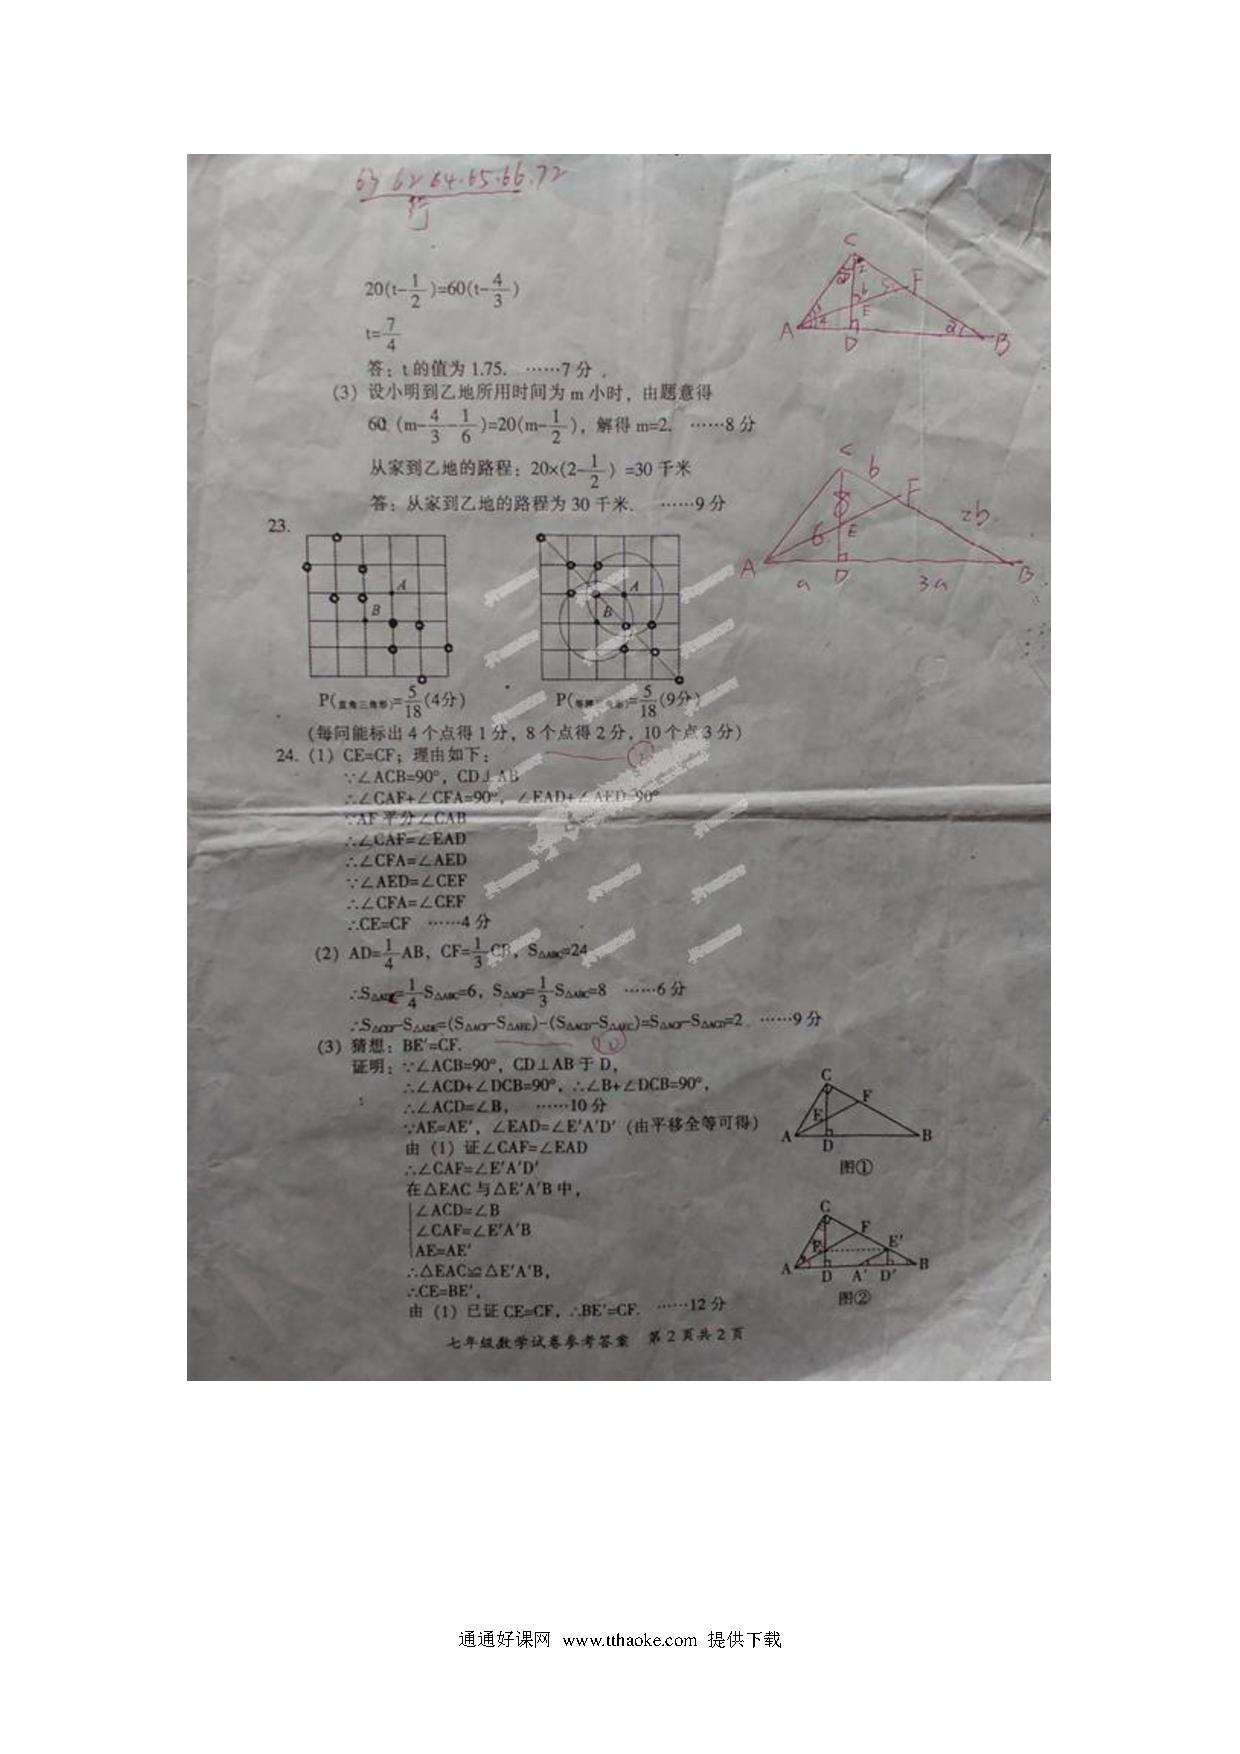 63 62 64.65.66.72
行
20(t-1/2)=60(t-4/3)
t=7/4
答：t的值为1.75. ……7分.
(3) 设小明到乙地所用时间为m小时，由题意得
60 (m-4/3-1/6)=20(m-1/2)，解得m=2. ……8分
从家到乙地的路程：20×(2-1/2) =30千米
答：从家到乙地的路程为30千米. ……9分
C
F
E
A
D
B
C
b
F
2b
8
6
E
A
a
D
3a
B
23.
A
B
A
B
P(直角三角形)=5/18(4分)
P(等腰三角形)=5/18(9分)
(每问能标出4个点得1分，8个点得2分，10个点3分)
24. (1) CE=CF；理由如下：
∵∠ACB=90°，CD⊥AB
∴∠CAF+∠CFA=90°，∠EAD+∠AED=90°
∵AF平分∠CAB
∴∠CAF=∠EAD
∴∠CFA=∠AED
∵∠AED=∠CEF
∴∠CFA=∠CEF
∴CE=CF ……4分
(2) AD=1/4AB，CF=1/3CB，S△ABC=24
∴S△ADC=1/4S△ABC=6，S△ACF=1/3S△ABC=8 ……6分
∴S△CEF-S△ADE=(S△ACF-S△AEC)-(S△ACD-S△AEC)=S△ACF-S△ACD=2. ……9分
(3) 猜想：BE′=CF.
证明：∵∠ACB=90°，CD⊥AB于D，
∴∠ACD+∠DCB=90°，∴∠B+∠DCB=90°，
∴∠ACD=∠B， ……10分
∵AE=AE′，∠EAD=∠E′A′D′ (由平移全等可得)
由 (1) 证∠CAF=∠EAD
∴∠CAF=∠E′A′D′
在△EAC与△E′A′B中，
∠ACD=∠B
∠CAF=∠E′A′B
AE=AE′
∴△EAC≌△E′A′B，
∴CE=BE′，
由 (1) 已证CE=CF，∴BE′=CF. ……12分
C
F
E
A
D
B
图①
C
F
E
E′
A
D
A′
D′
B
图②
七年级数学试卷参考答案 第2页共2页
通通好课网 www.tthaoke.com 提供下载